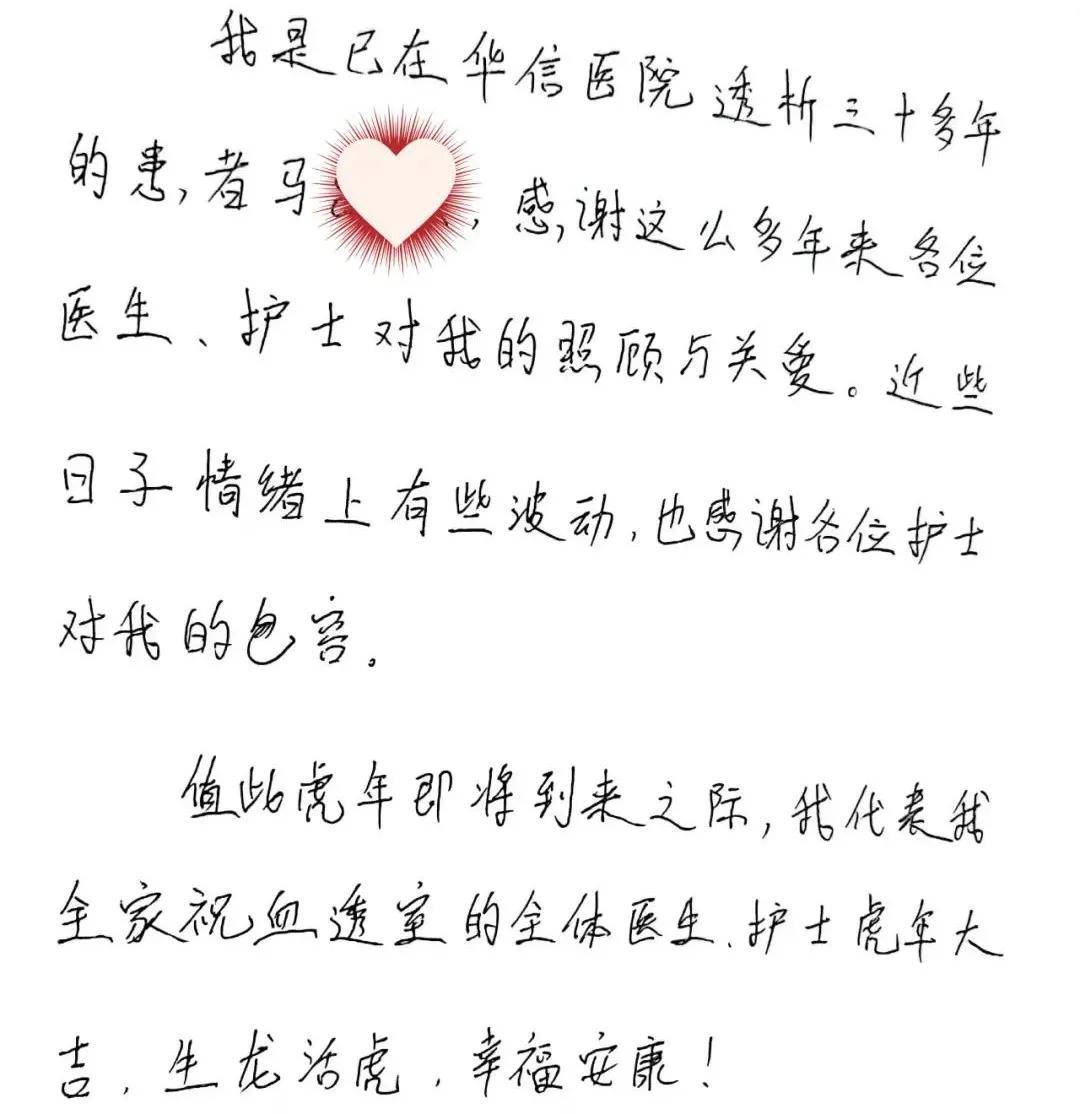 我是已在华信医院透析三十多年
的患者马，感谢这么多年来各位
医生、护士对我的照顾与关爱。近些
日子情绪上有些波动,也感谢各位护士
对我的包容。
值此虎年即将到来之际,我代表我
全家祝血透室的全体医生、护士虎年大
吉，生龙活虎，幸福安康！